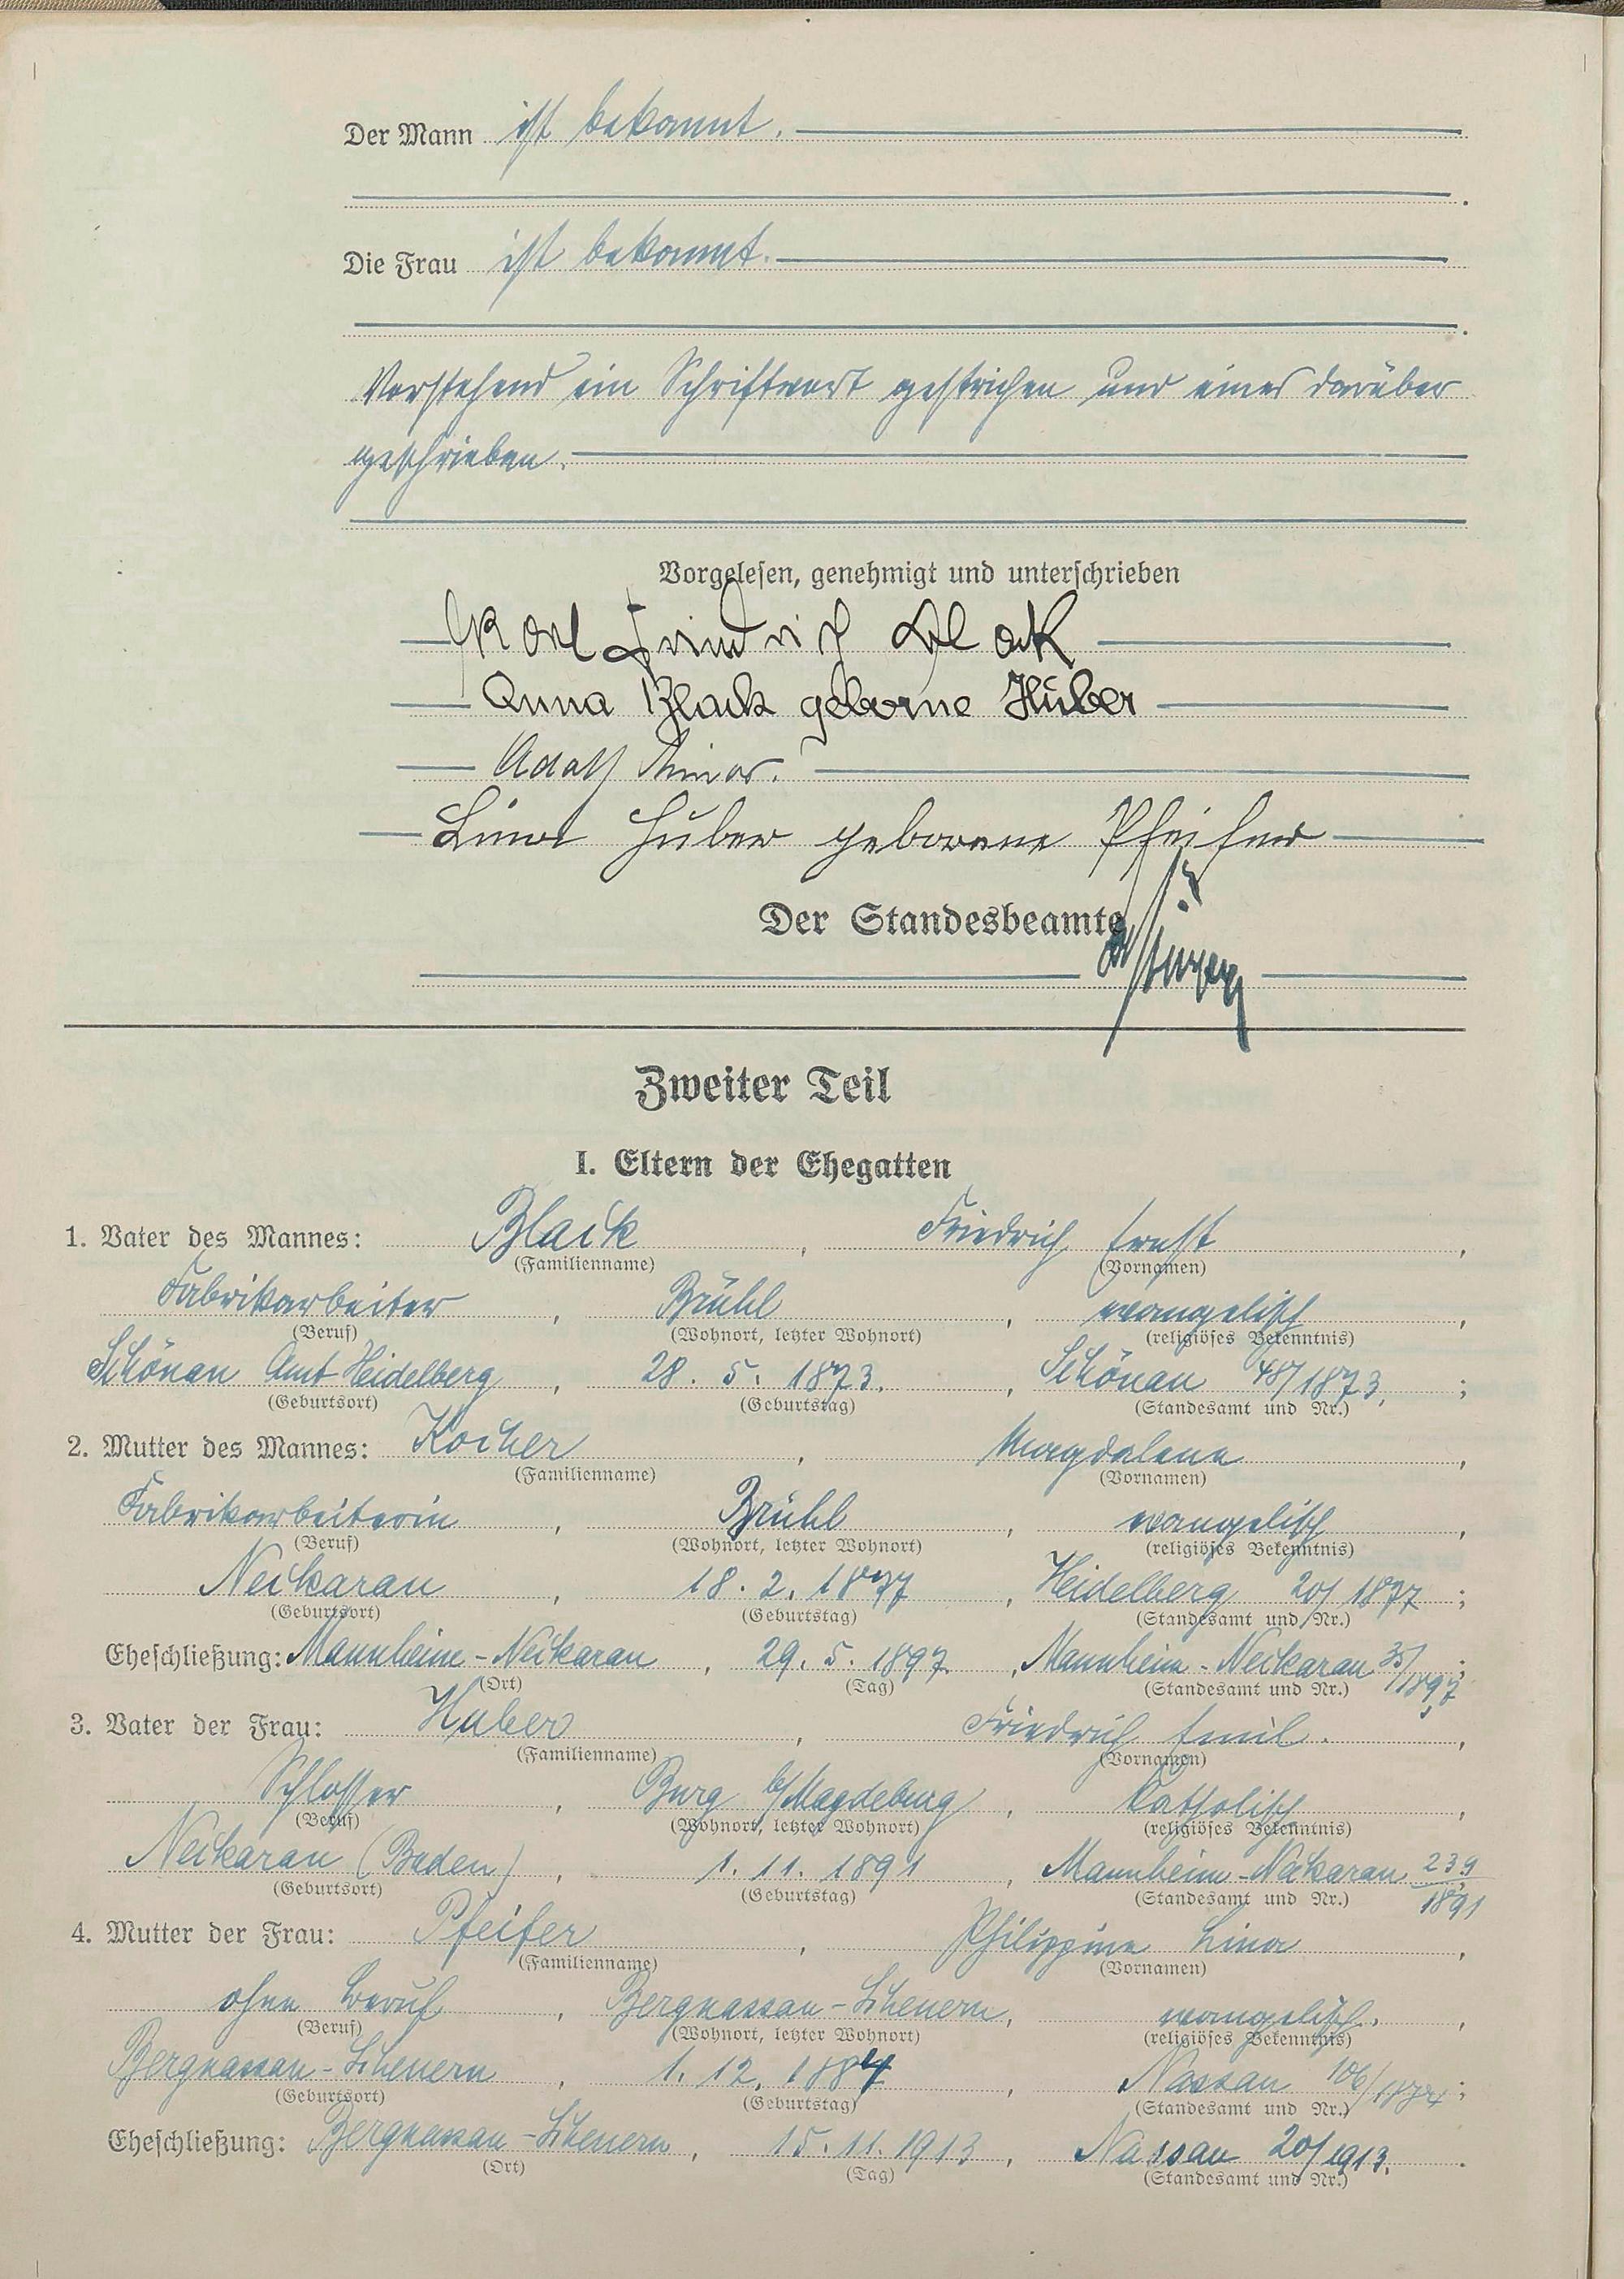 Der Mann ist bekannt.
Die Frau ist bekannt.
Vorstehend ein Schriftwort gestrichen und eines darüber
geschrieben.
Vorgelesen, genehmigt und unterschrieben
Karl Friedrich Black
Anna Black geborne Huber
Adolf
Lina Huber geborene Pfeifer
Der Standesbeamte
Zweiter Teil
I. Eltern der Ehegatten
1. Vater des Mannes: Black, Friedrich Ernst,
(Familienname) (Vornamen)
Fabrikarbeiter, Brühl, evangelisch,
(Beruf) (Wohnort, letzter Wohnort) (religiöses Bekenntnis)
Schönau Amt Heidelberg, 28. 5. 1873., Schönau 48/1873,;
(Geburtsort) (Geburtstag) (Standesamt und Nr.)
2. Mutter des Mannes: Kocher, Magdalena,
(Familienname) (Vornamen)
Fabrikarbeiterin, Brühl, evangelisch,
(Beruf) (Wohnort, letzter Wohnort) (religiöses Bekenntnis)
Neckarau, 18. 2. 1877, Heidelberg 20/1877;
(Geburtsort) (Geburtstag) (Standesamt und Nr.)
Eheschließung: Mannheim-Neckarau, 29. 5. 1897., Mannheim-Neckarau 35/1897;
(Ort) (Tag) (Standesamt und Nr.)
3. Vater der Frau: Huber, Friedrich Emil.,
(Familienname) (Vornamen)
Schlosser, Burg b/Magdeburg, katholisch,
(Beruf) (Wohnort, letzter Wohnort) (religiöses Bekenntnis)
Neckarau (Baden), 1. 11. 1891, Mannheim-Neckarau 239/1891
(Geburtsort) (Geburtstag) (Standesamt und Nr.)
4. Mutter der Frau: Pfeifer, Philippine Lina,
(Familienname) (Vornamen)
ohne Beruf, Bergnassau-Scheuern, evangelisch.,
(Beruf) (Wohnort, letzter Wohnort) (religiöses Bekenntnis)
Bergnassau-Scheuern, 1. 12. 1884, Nassau 106/;
(Geburtsort) (Geburtstag) (Standesamt und Nr.)
Eheschließung: Bergnassau-Scheuern, 15. 11. 1913, Nassau 20/1913.
(Ort) (Tag) (Standesamt und Nr.)